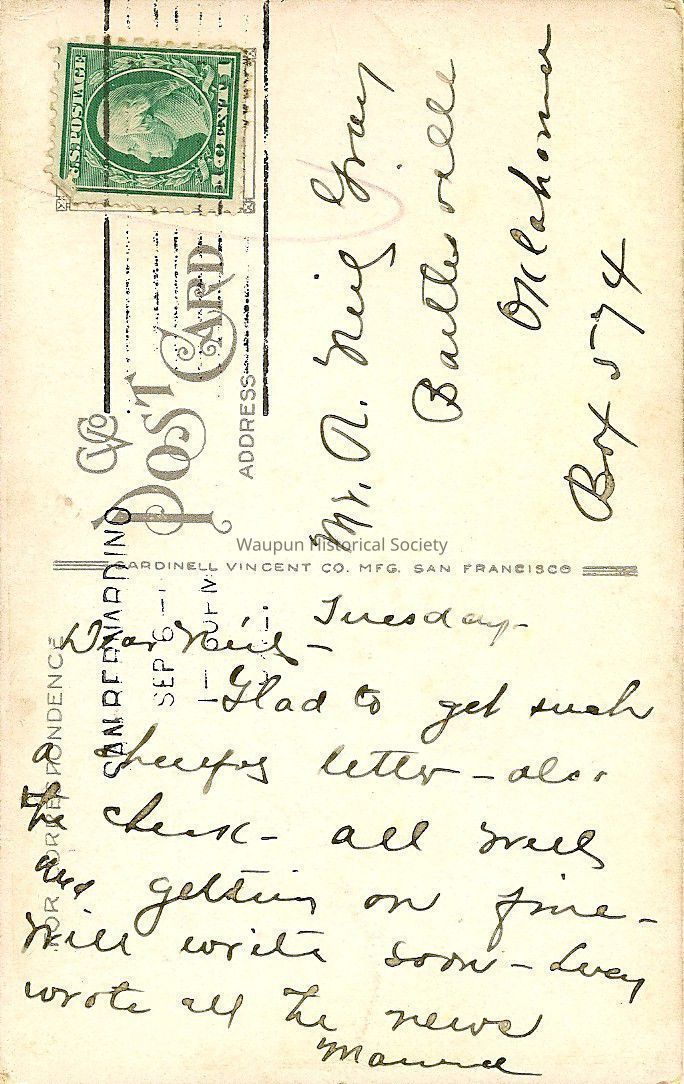 U.S. POSTAGE
1 CENT 1
POST CARD
ADDRESS
Mr. R. Neil Gray
Bartlesville
Oklahoma
Box 574
Waupun Historical Society
CARDINELL VINCENT CO. MFG. SAN FRANCISCO
SAN BERNARDINO
SEP 6
FOR CORRESPONDENCE
Tuesday-
Dear Neil-
Glad to get such
a cheerful letter - also
the check - all well
and getting on fine -
Will write soon - Lucy
wrote all the news